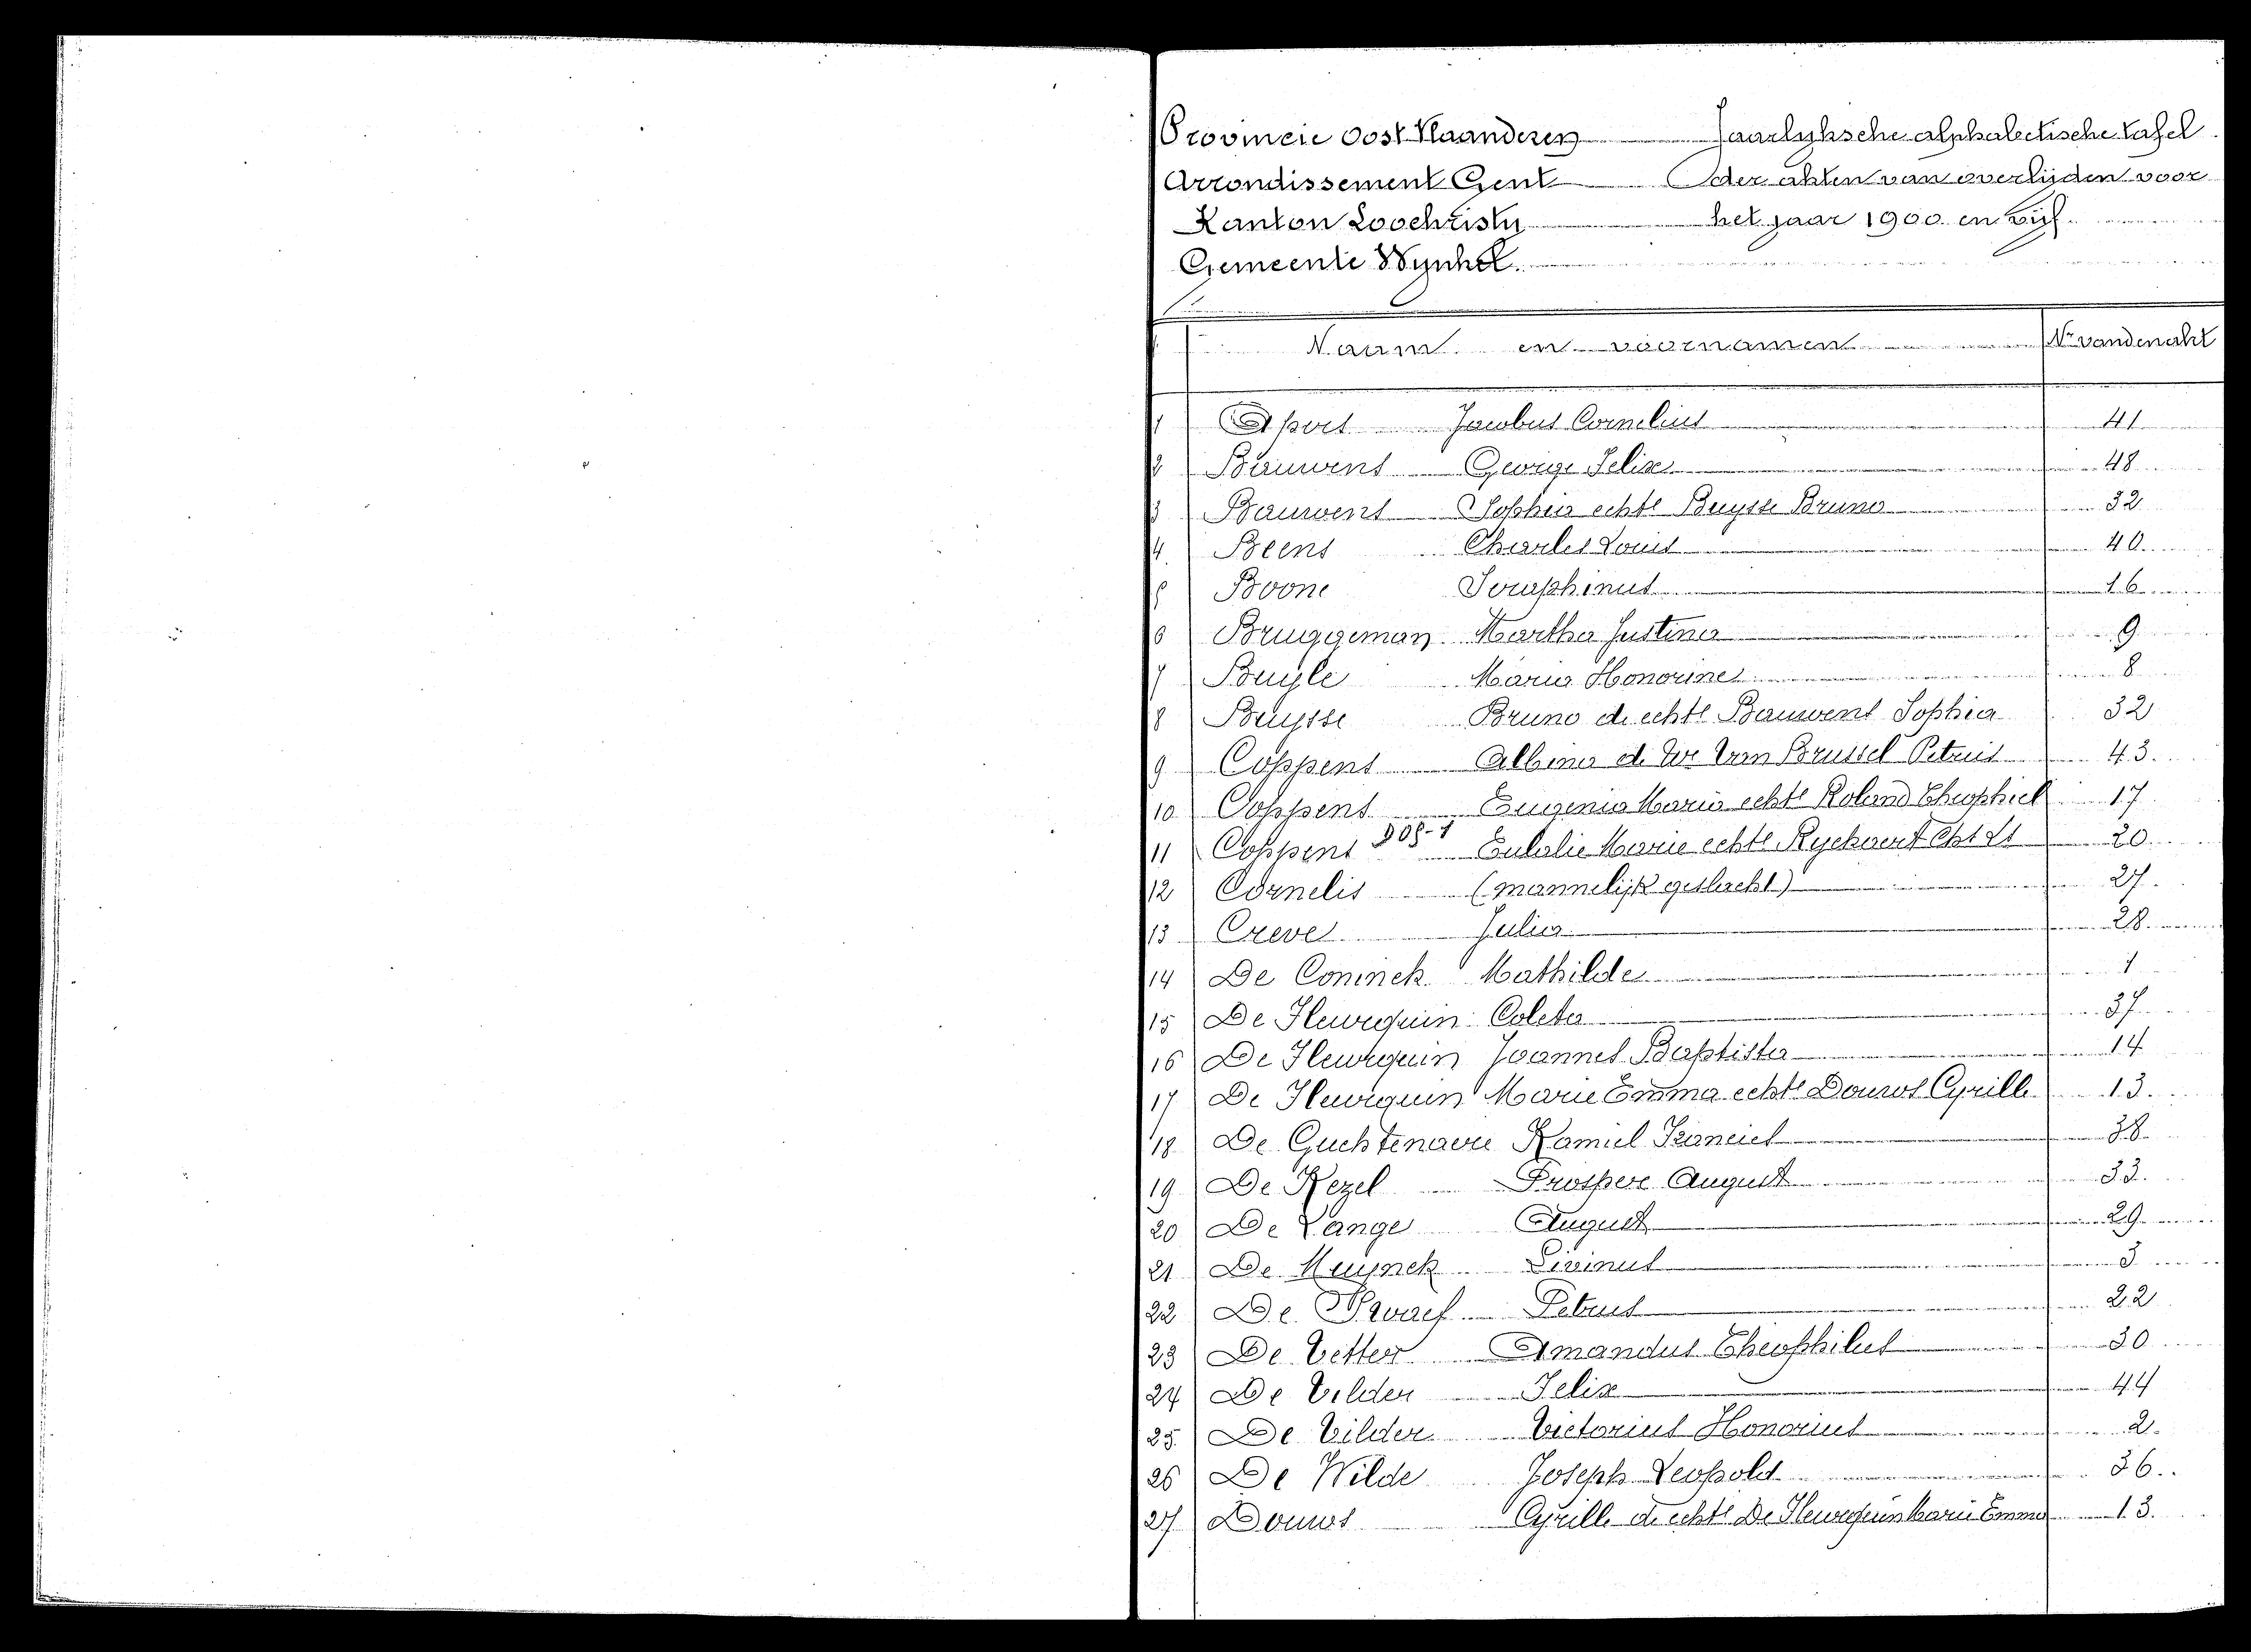 Provincie Oost Vlaanderen Jaarlyksche alphabetische tafel
Arrondissement Gent der akten van overlijden voor
Kanton Loochristy het jaar 1900 en vijf.
Gemeente Wynkel.
Naam en voornamen Nr van den akt
1 Jacobus Cornelius 41
2 Bauwens George Felix 48
3 Bauwens Sophia echte Buysse Bruno 32
4 Beens Charles Louis 40
5 Boone Seraphinus 16
6 Bruggeman Martha Justina 9
7 Buyle Maria Honorine 8
8 Buysse Bruno de echte Bauwens Sophia 32
9 Coppens Albina de Van Brussel Petrus 43.
10 Coppens Eugenia Maria echte Roland Theophiel 17
11 Coppens Eulalie Marie echte Ryckaert 20
12 Cornelis (mannelijk geslacht) 27.
13 Creve Julia 28
14 De Coninck Mathilde 1
15 De Hewequin Coleta 37
16 De Hewequin Joannes Baptista 14
17 De Hewequin Marie Emma echte Douws Cyrille 13.
18 De Guchtenaere Kamiel Francies 38
19 De Kezel Prosper August 33.
20 De Lange August 29
21 De Muynck Livinus 3
22 De Petrus 22
23 De Vetter Amandus Theophilus 30
24 De Vilder Felix 44
25. De Vilder Victorius Honorius 2.
26 De Wilde Joseph Leopold 36.
27 Douws Cyrille de echte De Hewequin Marie Emma 13.